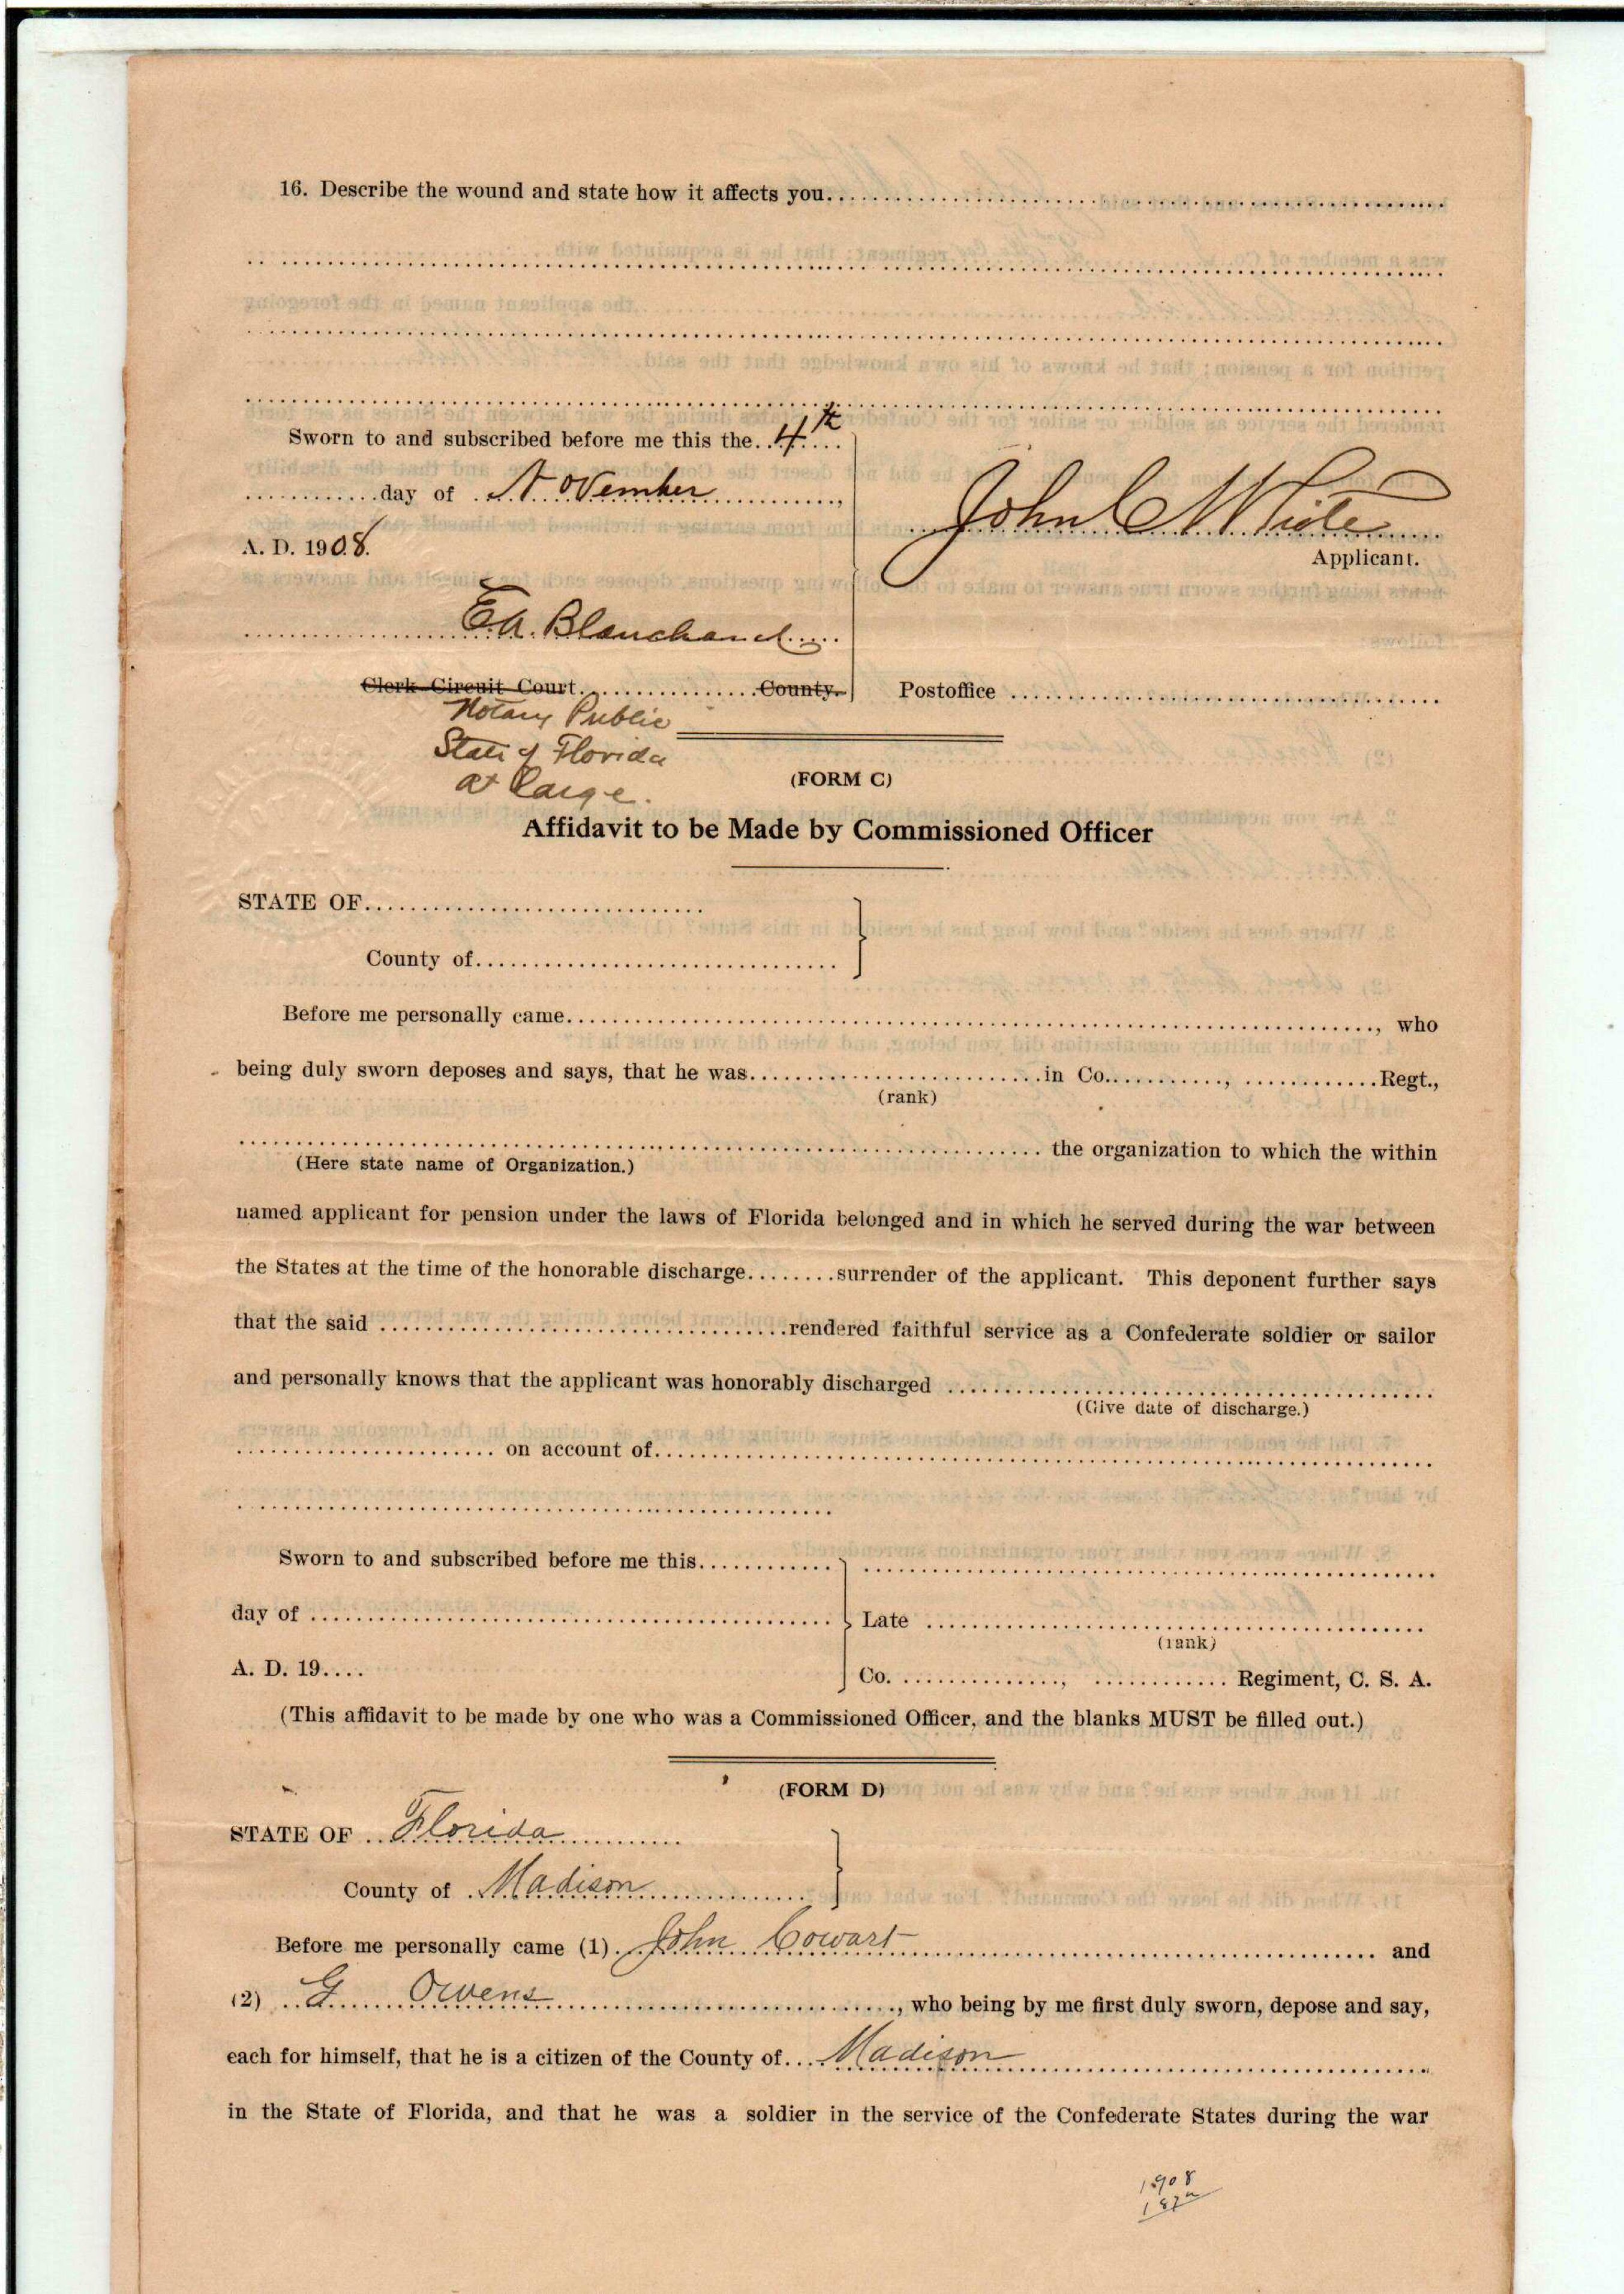 16. Describe the wound and state how it affects you
Sworn to and subscribed before me this the 4th
day of November,
A. D. 1908.
John C White
Applicant.
E.A. Blanchard
Clerk Circuit Court County.
Postoffice
Notary Public
State of Florida
at Large.
(FORM C)
Affidavit to be Made by Commissioned Officer
STATE OF
County of
Before me personally came, who
being duly sworn deposes and says, that he was in Co., Regt.,
(rank)
the organization to which the within
(Here state name of Organization.)
named applicant for pension under the laws of Florida belonged and in which he served during the war between
the States at the time of the honorable discharge surrender of the applicant. This deponent further says
that the said rendered faithful service as a Confederate soldier or sailor
and personally knows that the applicant was honorably discharged
(Give date of discharge.)
on account of
Sworn to and subscribed before me this
day of
Late
(rank)
A. D. 19
Co. , Regiment, C. S. A.
(This affidavit to be made by one who was a Commissioned Officer, and the blanks MUST be filled out.)
(FORM D)
STATE OF Florida
County of Madison
Before me personally came (1) John Cowart and
(2) G Owens, who being by me first duly sworn, depose and say,
each for himself, that he is a citizen of the County of Madison
in the State of Florida, and that he was a soldier in the service of the Confederate States during the war
1908